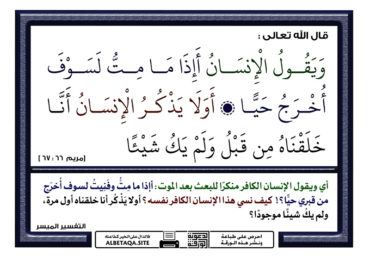 قال الله تعالى :
وَيَقُولُ الْإِنسَانُ أَإِذَا مَا مِتُّ لَسَوْفَ
أُخْرَجُ حَيًّا ۞ أَوَلَا يَذْكُرُ الْإِنسَانُ أَنَّا
خَلَقْنَاهُ مِن قَبْلُ وَلَمْ يَكُ شَيْئًا
[مريم ٦٦ : ٦٧]
أي ويقول الإنسان الكافر منكرًا للبعث بعد الموت : أإذا ما مِتُّ وفَنِيتُ لسوف أُخرَج
من قبري حيًّا؟! كيف نسي هذا الإنسان الكافر نفسه ؟ أولا يَذْكُر أنا خلقناه أول مرة،
ولم يكُ شيئًا موجودًا؟
التفسير الميسر
احرص على طباعة
ونشر هذه الورقة
فالدال على الخير كفاعله
ALBETAQA.SITE